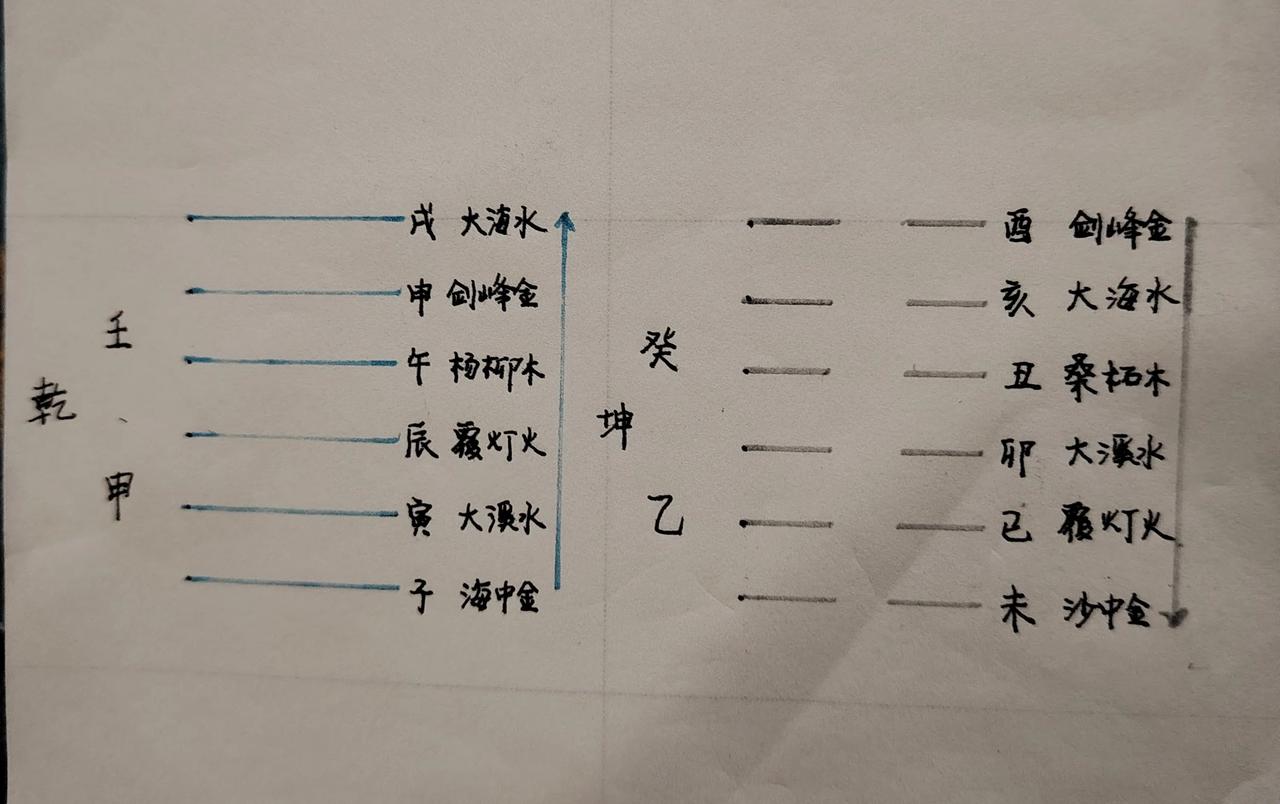 戌 大海水
申 剑峰金
午 杨柳木
辰 覆灯火
寅 大溪水
子 海中金
壬
乾
申
酉 剑峰金
亥 大海水
丑 桑柘木
卯 大溪水
已 覆灯火
未 沙中金
癸
坤
乙